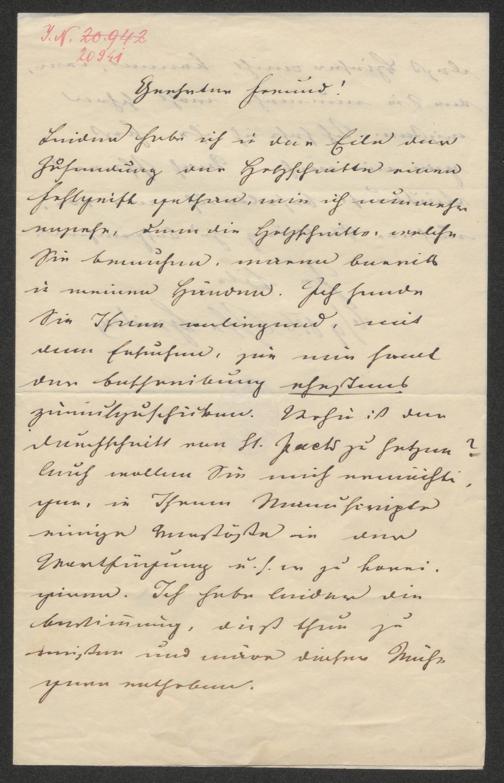 J.N. 20.942
20941
Geehrter Freund!
Leider habe ich in der Eile der
Zusendung der Holzschnitte einen
Fehlgriff gethan, wie ich nunmehr
ersehe, denn die Holzschnitte, welche
Sie benöthigen, waren bereits
in meinen Händen. Ich sende
Sie Ihnen anliegend, mit
dem Ersuchen, sie mir sammt
der Beschreibung ehestens
zurückzuschicken. Wohin ist der
Durchschnitt von St. zu setzen?
Auch wollen Sie mich ermächti-
gen, in Ihrem Manuscripte
einige Verstöße in der
Wortfügung u.s.w zu korri-
giren. Ich habe leider die
Bestimmung, dieß thun zu
müssen und wäre dieser Mühe
gern enthoben.